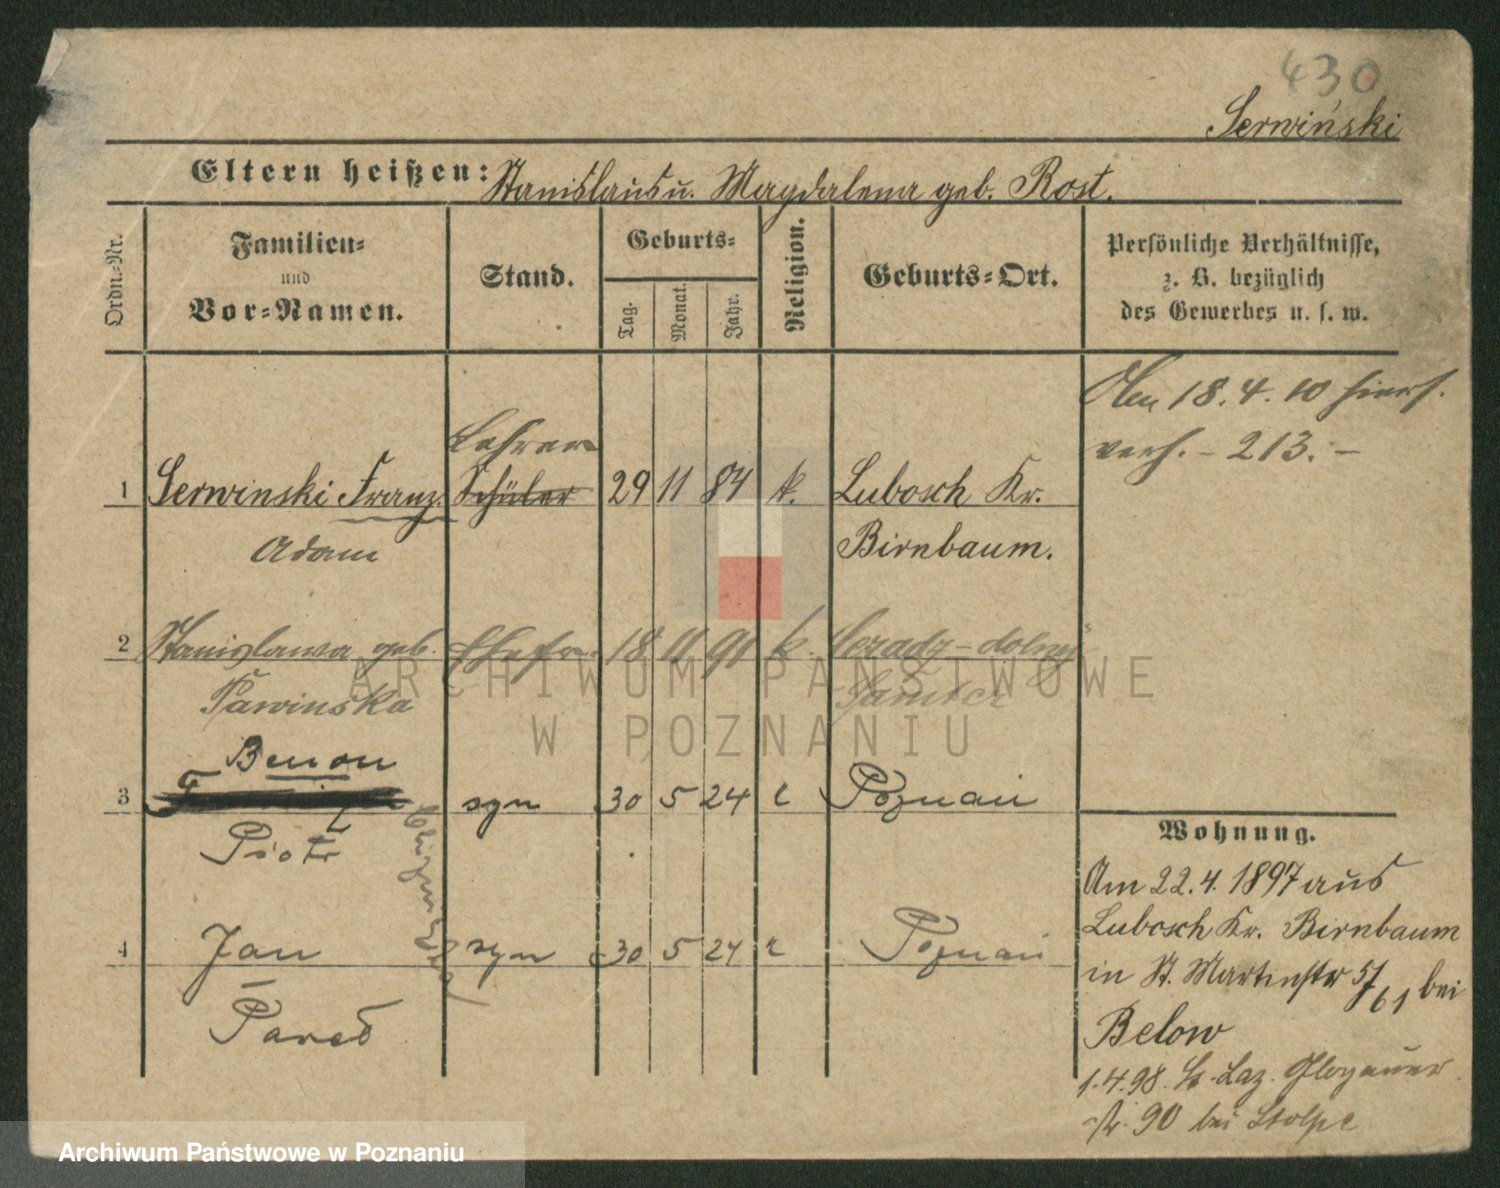 430
Serwiński
Eltern heißen: Stanislaus u. Magdalena geb. Rost.
Ordn.=Nr.
Familien=
und
Vor=Namen.
Stand.
Geburts=
Tag.
Monat.
Jahr.
Religion.
Geburts=Ort.
Persönliche Verhältnisse,
z. B. bezüglich
des Gewerbes u. s. w.
18. 4. 10
verh. - 213. -
Lehrer
1 Serwinski Franz. Schüler 29 11 84 k. Lubosch Kr.
Adam
Birnbaum.
2 Stanislawa geb. Ehefr. 18 11 91 k. dolny
Pawinska
Samter
Benon
3 syn 30 5 24 Poznań
Piotr
4 Jan syn 30 5 24 Poznań
Paweł
Wohnung.
Am 22. 4. 1897 aus
Lubosch Kr. Birnbaum
in St. Martinstr 57/61 bei
Below
1. 4. 98. St. Laz. Glogauer
str. 90 bei Stolpe
ARCHIWUM PAŃSTWOWE
W POZNANIU
Archiwum Państwowe w Poznaniu